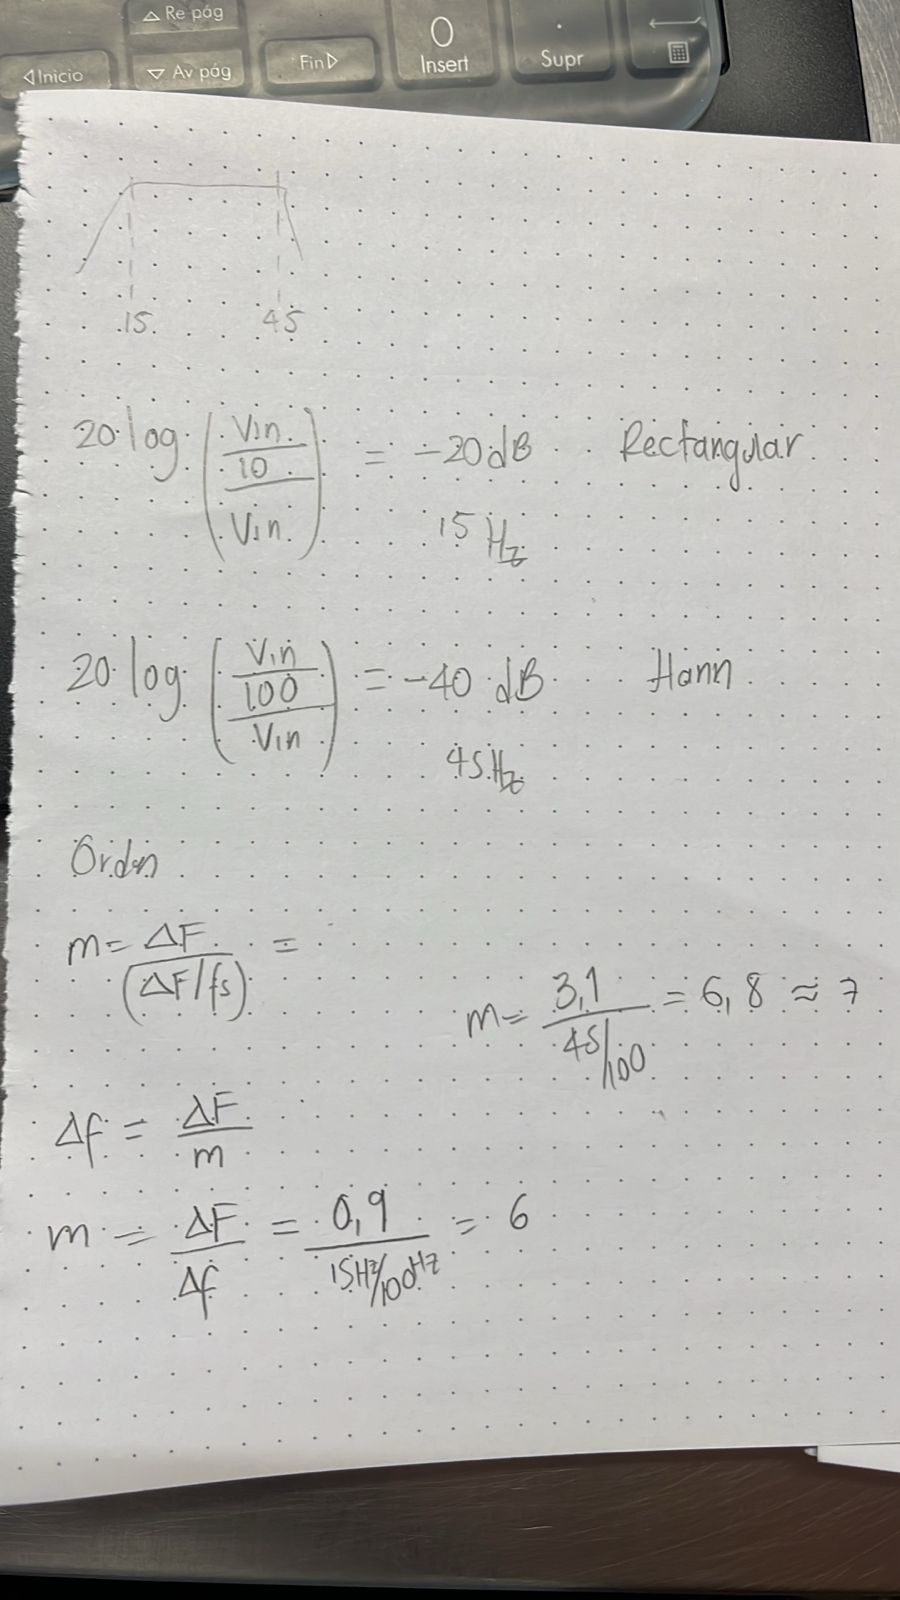 △ Re pág
◁ Inicio
▽ Av pág
Fin ▷
0
Insert
.
Supr
15
45
20 log ((Vin/10)/Vin) = -20 dB Rectangular
15 Hz
20 log ((Vin/100)/Vin) = -40 dB Hann
45 Hz
Orden
m = ΔF/(ΔF/fs) =
m = 3,1/(45/100) = 6,8 ≈ 7
Δf = ΔF/m
m = ΔF/Δf = 0,9/(15Hz/100Hz) = 6